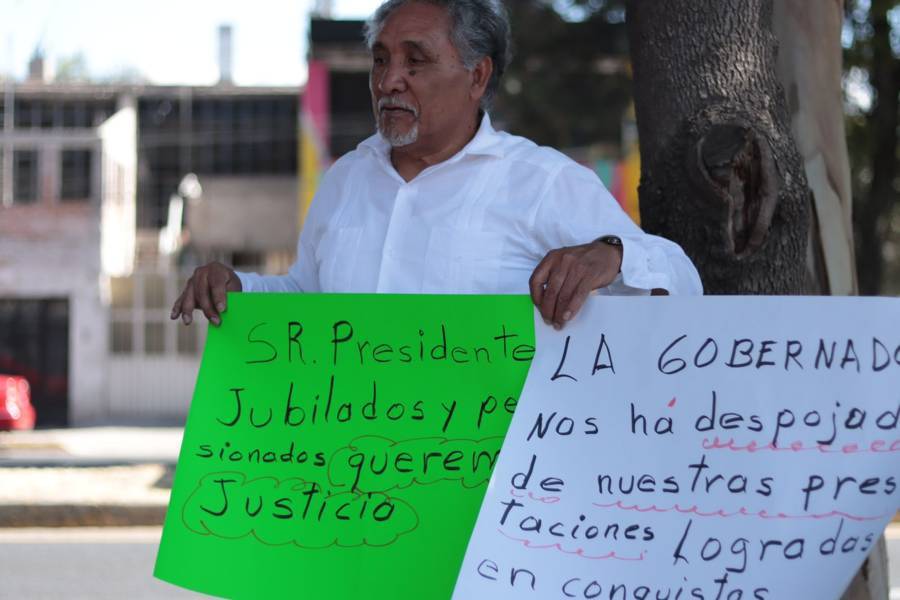 SR. Presidente
Jubilados y pe
sionados querem
Justicio
LA GOBERNADO
Nos há despojad
de nuestras pres
taciones Logradas
en conquistas